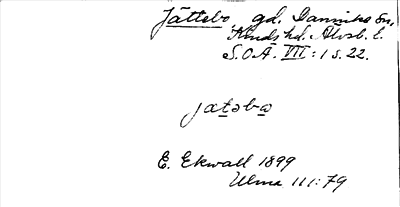 Jättebo, gd. Dannike sn,
Kinds hd. Älvsb. l.
S.O.Ä. VII:1 s. 22.
jatəbo
E. Ekwall 1899
Ulma 111:79